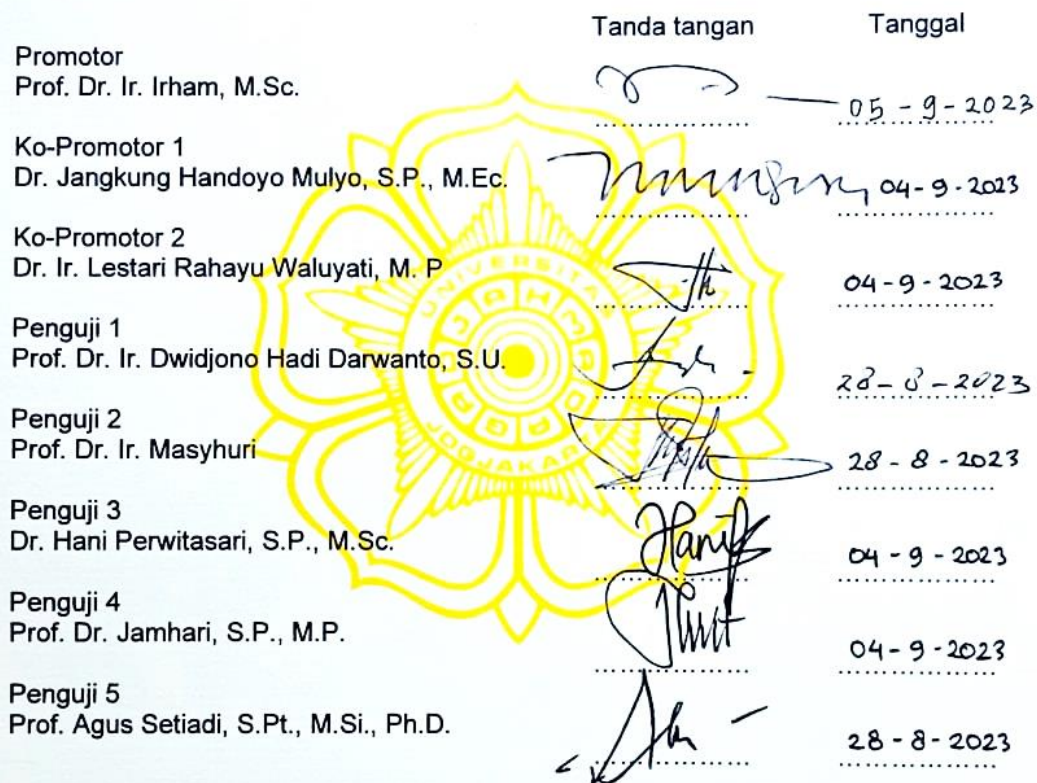 Tanda tangan Tanggal
Promotor
Prof. Dr. Ir. Irham, M.Sc.
05 - 9 - 2023
Ko-Promotor 1
Dr. Jangkung Handoyo Mulyo, S.P., M.Ec.
04 - 9 - 2023
Ko-Promotor 2
Dr. Ir. Lestari Rahayu Waluyati, M. P
04 - 9 - 2023
Penguji 1
Prof. Dr. Ir. Dwidjono Hadi Darwanto, S.U.
28 - 8 - 2023
Penguji 2
Prof. Dr. Ir. Masyhuri
28 - 8 - 2023
Penguji 3
Dr. Hani Perwitasari, S.P., M.Sc.
04 - 9 - 2023
Penguji 4
Prof. Dr. Jamhari, S.P., M.P.
04 - 9 - 2023
Penguji 5
Prof. Agus Setiadi, S.Pt., M.Si., Ph.D.
28 - 8 - 2023
UNIVERSITA
GADJAH MADA
JOGJAKAR